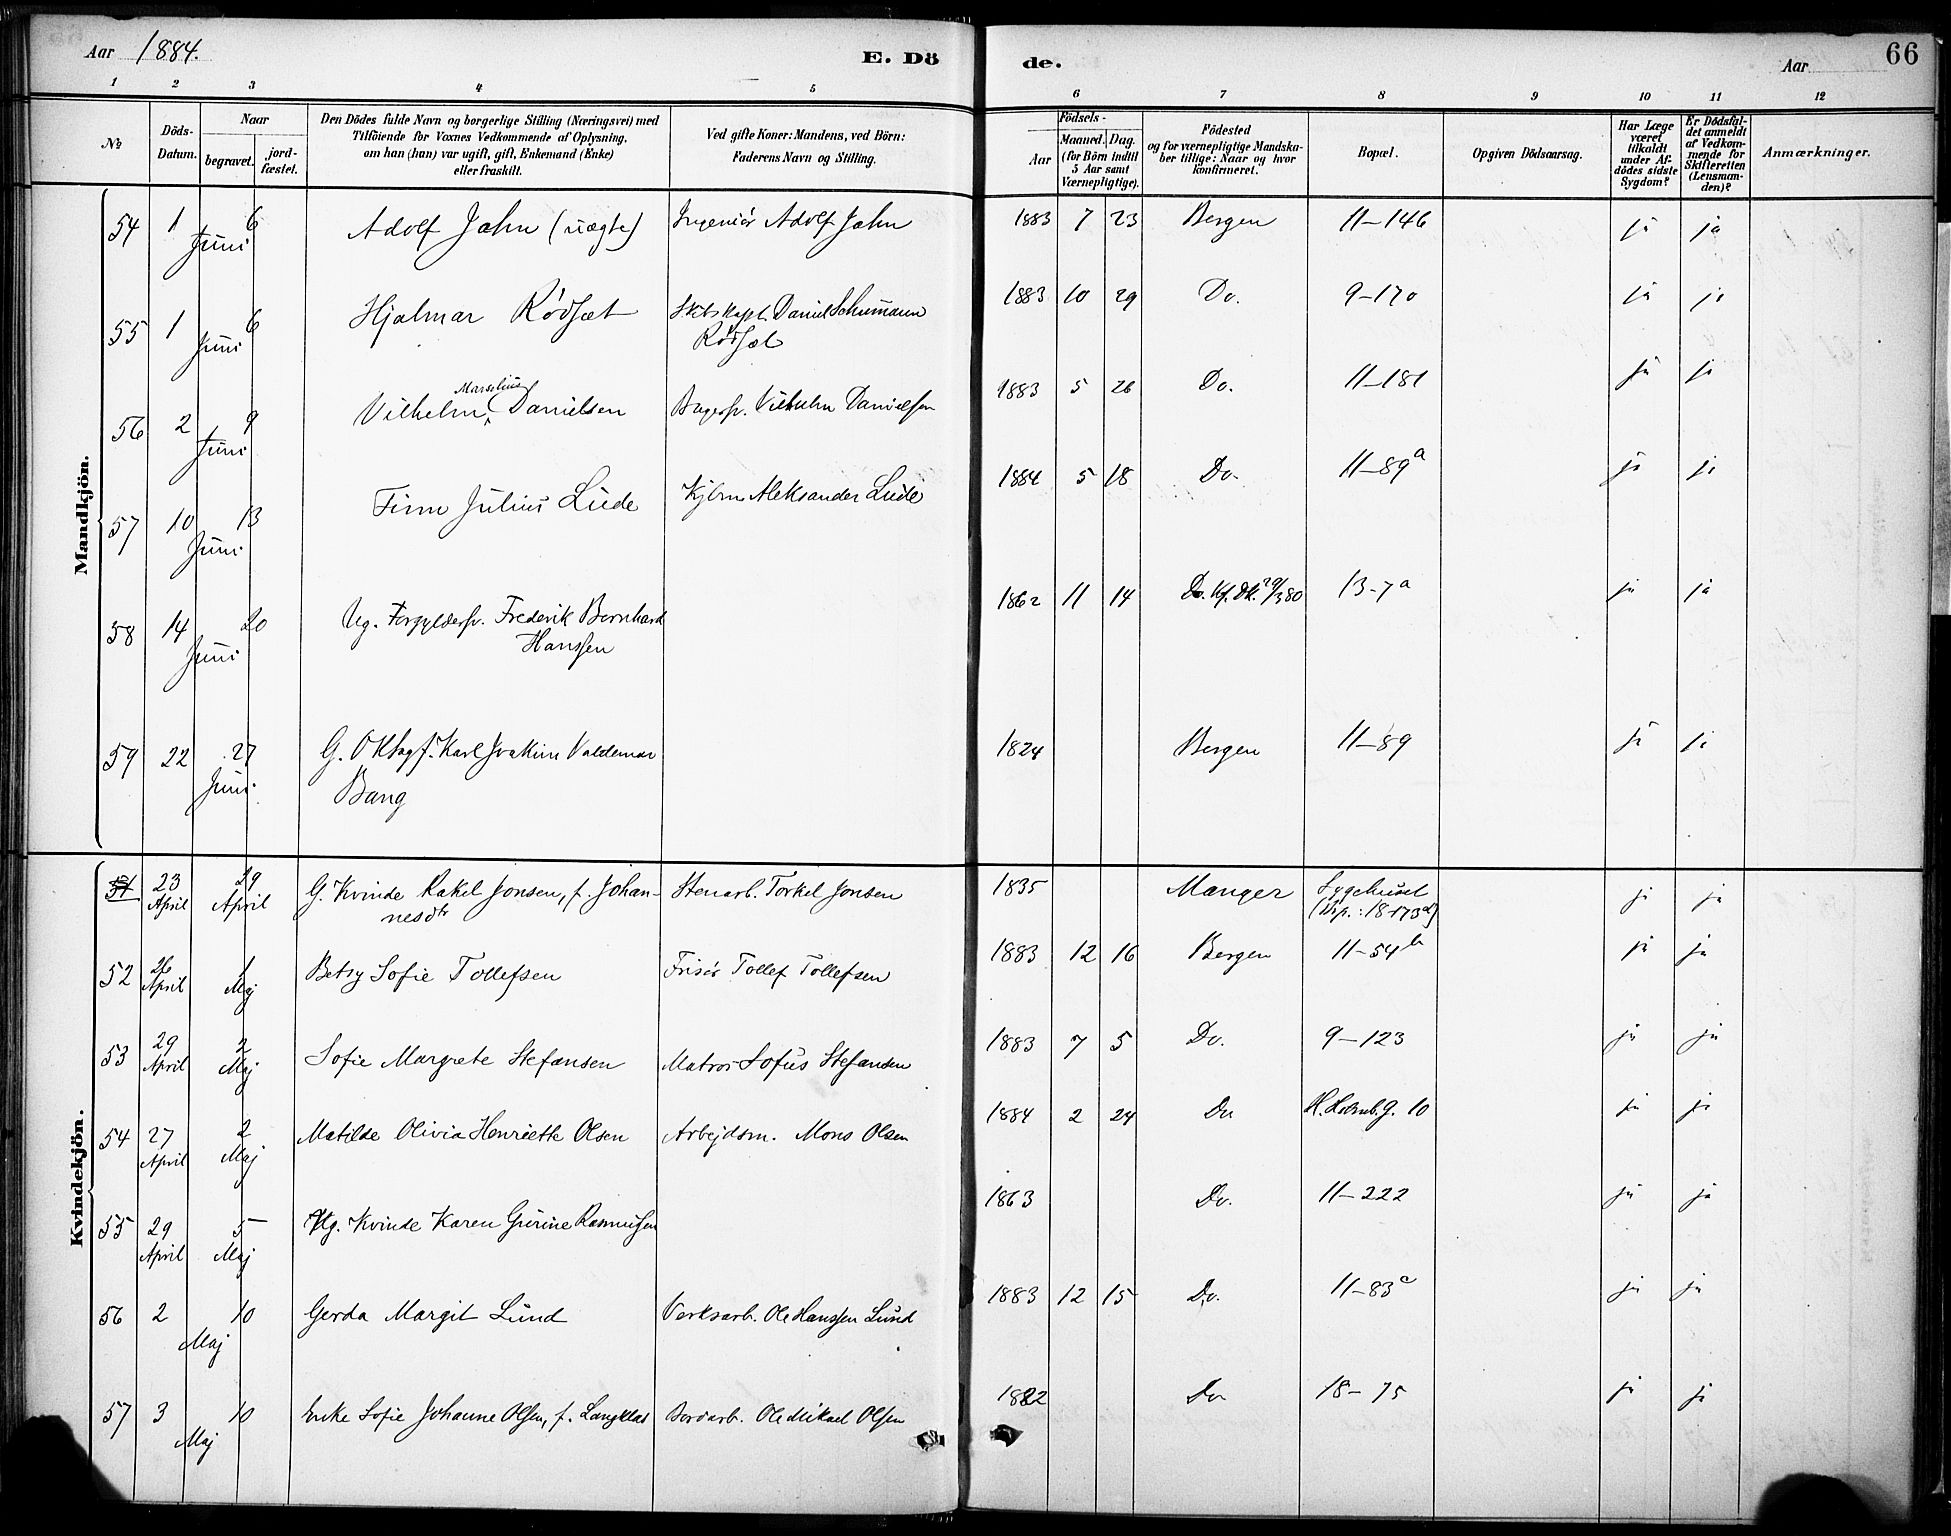 Aar 1884.
E. Dö
de.
Aar
66
1 2 3 4 5 6 7 8 9 10 11 12
№
Döds-
Datum.
Naar
begravet.
jord-
fæstet.
Den Dödes fulde Navn og borgerlige Stilling (Næringsvei) med
Tilföiende for Voxnes Vedkommende af Oplysning,
om han (hun) var ugift, gift, Enkemand (Enke)
eller fraskilt.
Ved gifte Koner: Mandens, ved Börn:
Faderens Navn og Stilling.
Födsels-
Aar
Maaned.
Dag.
(for Börn indtil
5 Aar samt
Værnepligtige).
Födested
og for værnepligtige Mandska-
ber tillige: Naar og hvor
konfirmeret.
Bopæl.
Opgiven Dödsaarsag.
Har Læge
været
tilkaldt
under Af-
dödes sidste
Sygdom?
Er Dödsfal-
det anmeldt
af Vedkom-
mende for
Skifteretten
(Lensman-
den)?
Anmærkninger.
Mandkjön.
54 1 6 Juni Adolf Jahn (uægte) Ingeniör Adolf Jahn 1883 7 23 Bergen 11-146 ja ja
55 1 6 Juni Hjalmar Rødsæt Skibskapt. Daniel Schumann
Rødsæt 1883 10 29 Do. 9-170 ja ja
56 2 9 Juni Vilhelm Marselius Danielsen Bagersv. Vilhelm Danielsen 1883 5 26 Do. 11-181 ja ja
57 10 13 Juni Finn Julius Lüde Aleksander Lüde 1884 5 18 Do. 11-89a ja ja
58 14 20 Juni Ug. Forgyldersv. Frederik Bernhard
Hanssen 1862 11 14 Do. Kf. Dk. 80 13-7a ja ja
59 22 27 Juni G. Karl Joakim Valdemar
Bang 1824 Bergen 11-89 ja ja
Kvindekjön.
51 23 April 29 April G. Kvinde Rakel Jonsen, f. Johan-
nesdtr Stenarb. Torkel Jonsen 1835 Manger Sygehuset
18-173d) ja ja
52 26 April 1 Maj Betsy Sofie Tollefsen Frisör Tollef Tollefsen 1883 12 16 Bergen 11-54b ja ja
53 29 April 2 Maj Sofie Margrete Stefansen Matros Sofus Stefansen 1883 7 5 Do. 9-123 ja ja
54 27 April 2 Maj Matilde Olivia Henriette Olsen Arbejdsm. Mons Olsen 1884 2 24 Do 10 ja ja
55 29 April 5 Maj Ug. Kvinde Karen Gurine Rasmussen 1863 Do. 11-222 ja ja
56 2 10 Maj Gerda Margit Lund Verksarb. Ole Hanssen Lund 1883 12 15 Do. 11-83c ja ja
57 3 10 Maj Enke Sofie Johanne Olsen, f. Langklas Ole Mikael Olsen 1822 Do 18-75 ja ja